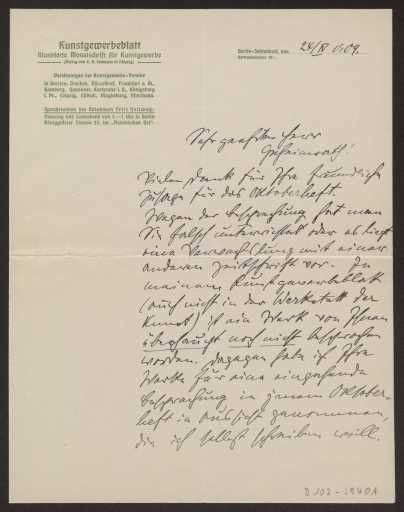 Kunstgewerbeblatt
Illustrierte Monatsschrift für Kunstgewerbe
(Verlag von E. A. Seemann in Leipzig)
Vereinsorgan der Kunstgewerbe-Vereine
in Bremen, Dresden, Düsseldorf, Frankfurt a. M.,
Hamburg, Hannover, Karlsruhe i. B., Königsberg
i. Pr., Leipzig, Magdeburg,
Sprechstunden des Redakteurs Fritz Hellwag:
Dienstag und Sonnabend von 2—3 Uhr in Berlin
Königgrätzer Strasse
Berlin-Zehlendorf, den 28/ 1909
Sehr geehrter Herr
Geheimrath!
Vielen Dank für Ihre freundliche
Zusage für das Oktoberheft.
Wegen der Besprechung hat man
Sie falsch unterrichtet oder es liegt
eine Verwechslung mit einer
anderen Zeitschrift vor. In
meinem Kunstgewerbeblatt
(auch nicht in der Werkstatt der
Kunst) ist ein Werk von Ihnen
überhaupt noch nicht besprochen
worden. Dagegen habe ich Ihre
Werke für eine eingehende
Besprechung in jenem Oktober-
heft in Aussicht genommen,
die ich selbst schreiben will.